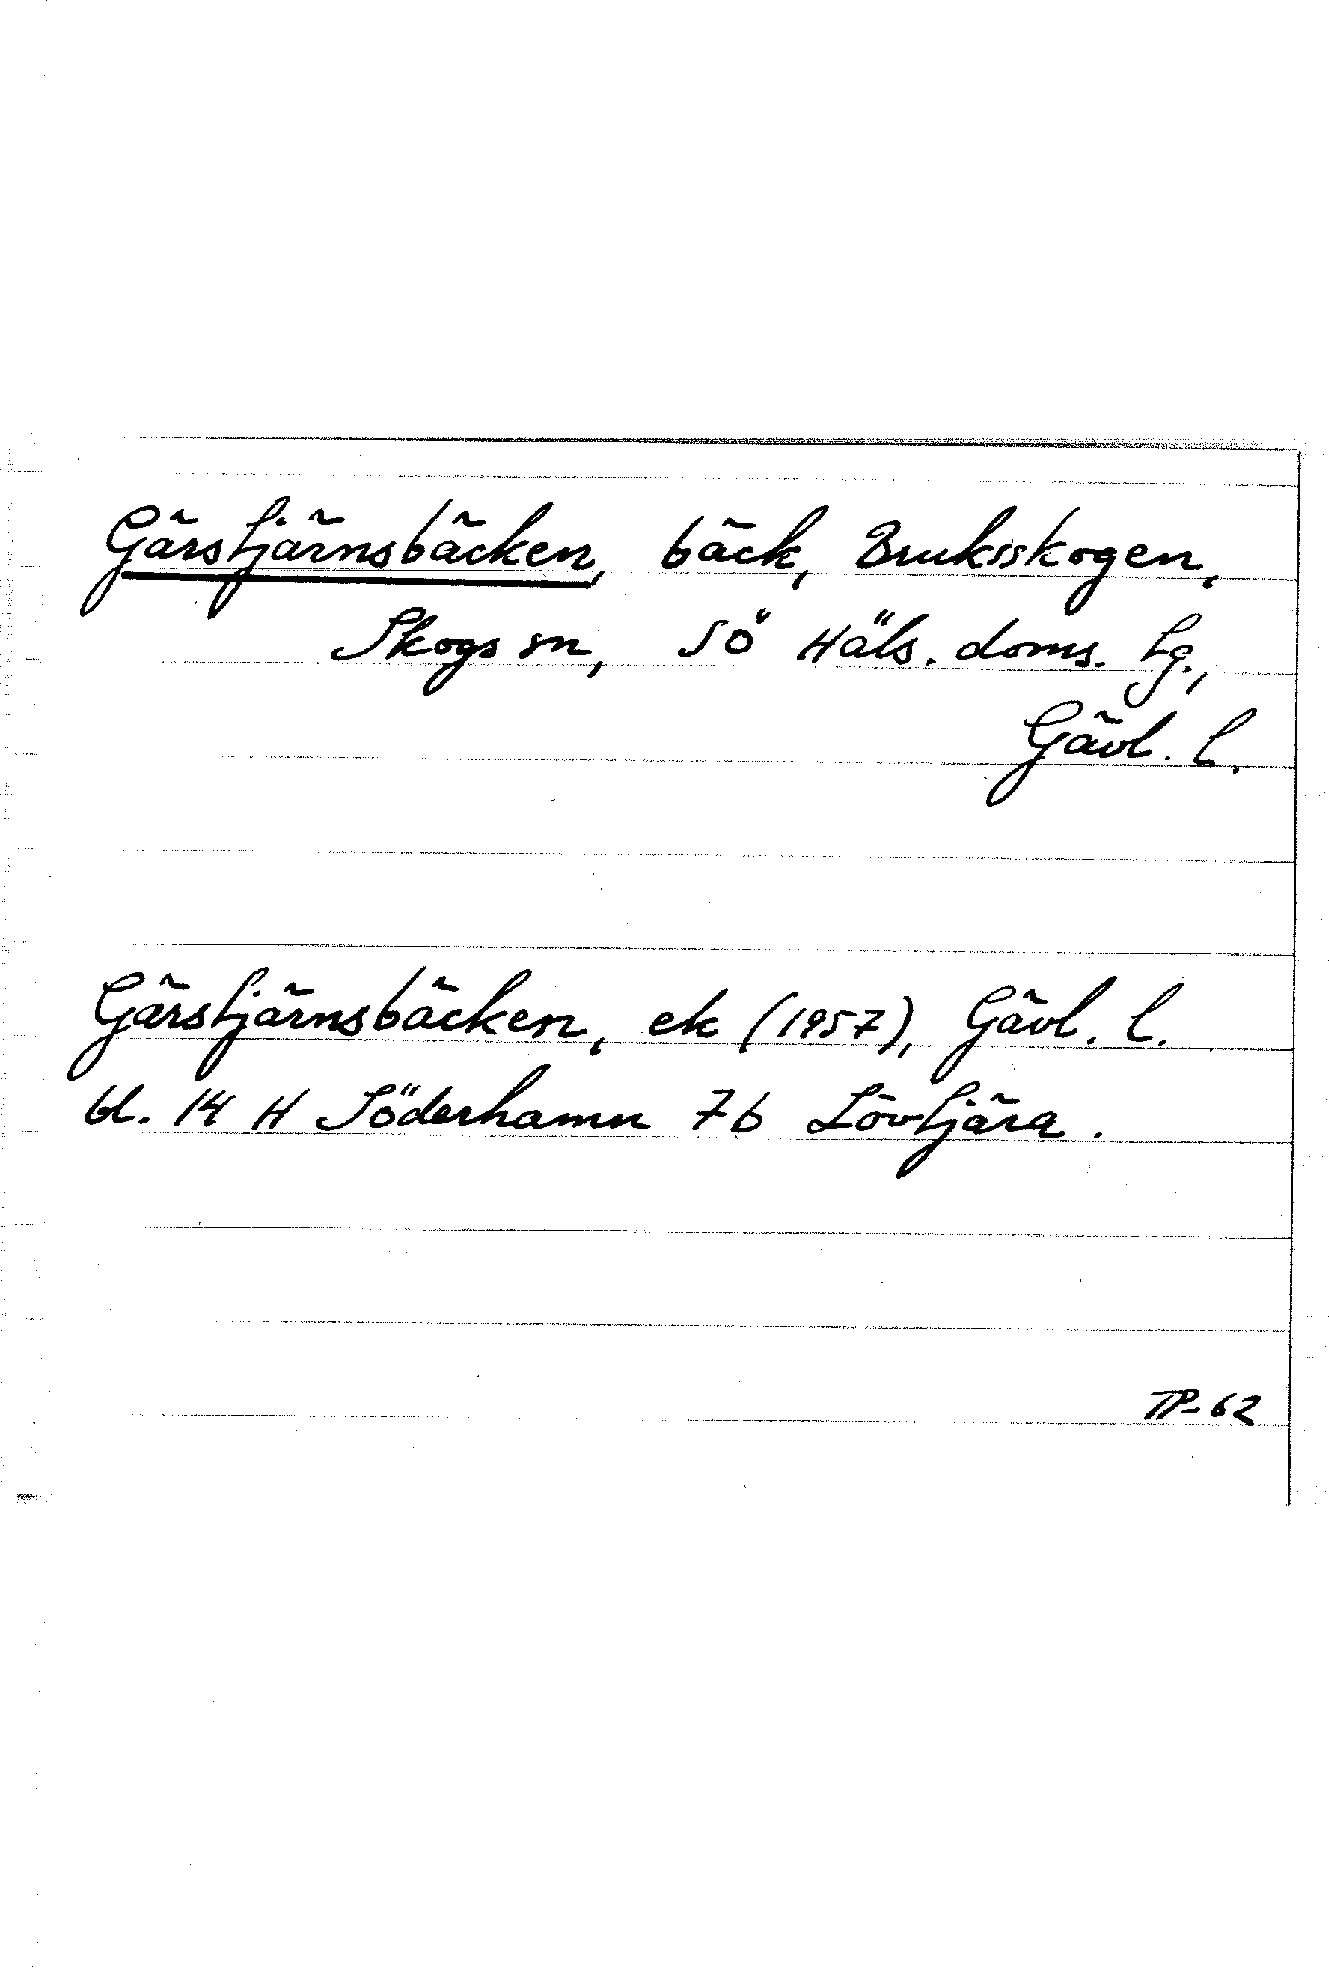 Gärstjärnsbäcken, bäck, Bruksskogen,
Skogs sn, Sö Häls. doms. tg.,
Gävl. l.
Gärstjärnsbäcken, ek (1957), Gävl. l.
bl. 14 H Söderhamn 7b Lövtjära.
TP-62